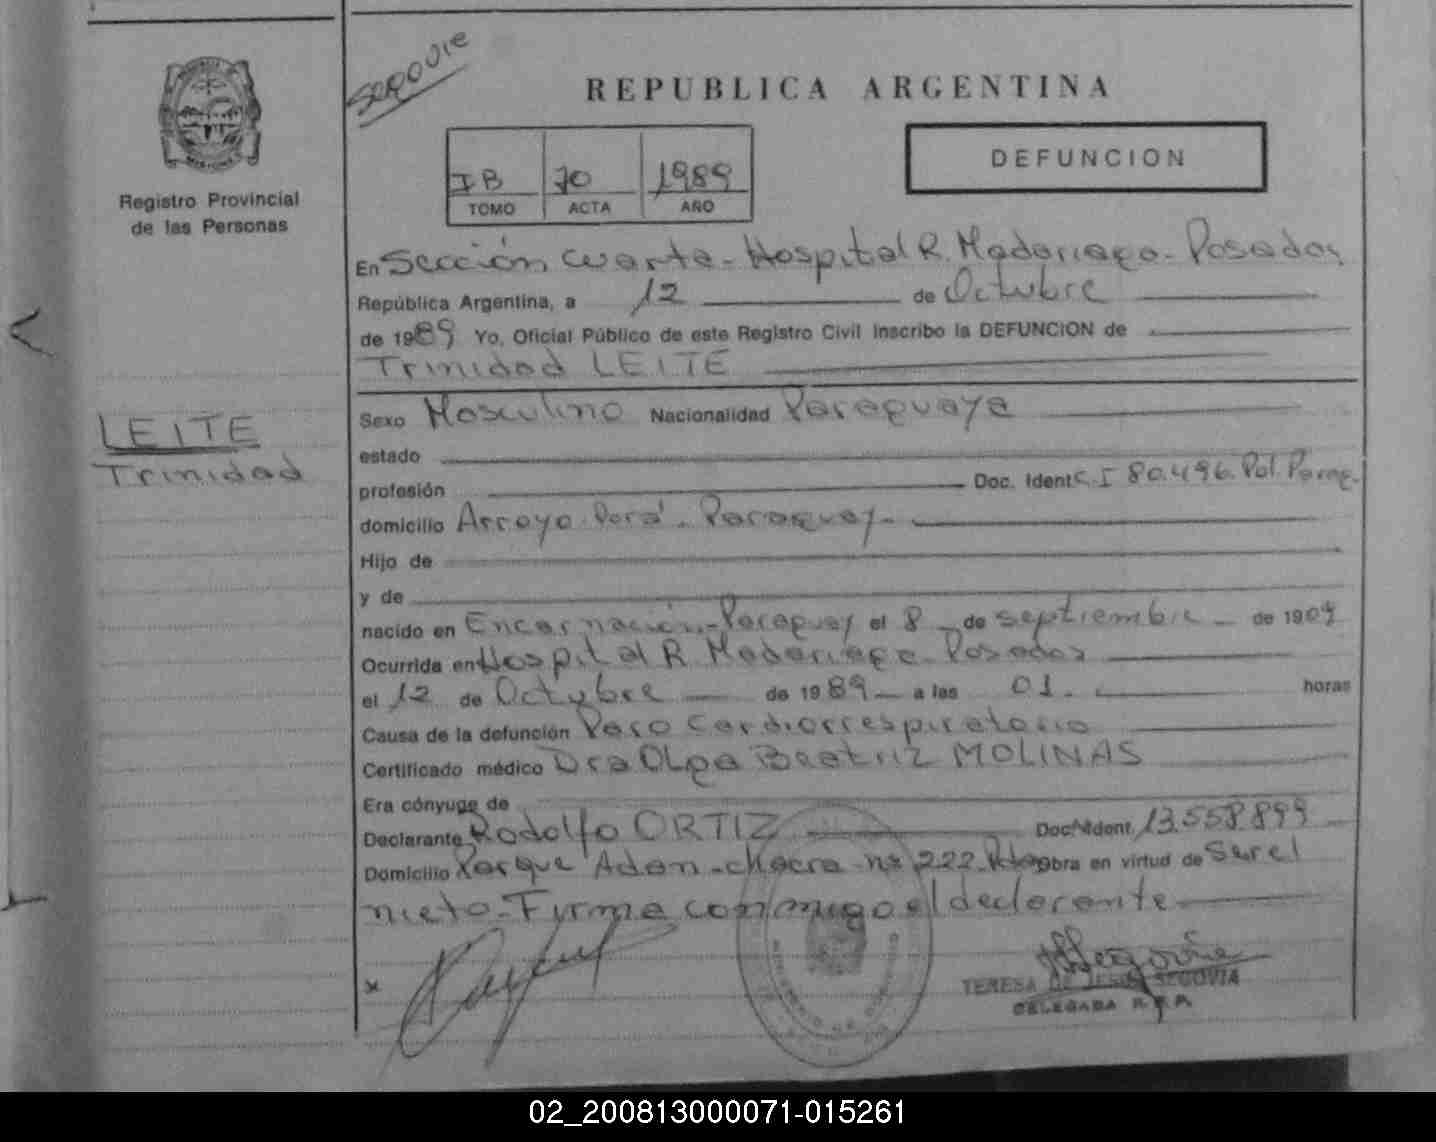 SEGOVIA
REPUBLICA ARGENTINA
Registro Provincial
de las Personas
DEFUNCION
IB 70 1989
TOMO ACTA AÑO
En Sección cuarta - Hospital R. Madariaga - Posadas,
República Argentina, a 12 de Octubre
de 1989 Yo, Oficial Público de este Registro Civil inscribo la DEFUNCION de
Trinidad LEITE
LEITE
Trinidad
Sexo Masculino Nacionalidad Paraguaya
estado
profesión Doc. Ident. C.I 80.496. Pol. Parag.
domicilio Arroyo Porá - Paraguay -
Hijo de
y de
nacido en Encarnación - Paraguay el 8 de septiembre de 1909
Ocurrida en Hospital R. Madariaga - Posadas
el 12 de Octubre de 1989 a las 01. horas
Causa de la defunción Paro Cardiorrespiratorio
Certificado médico Dra Olga Beatriz MOLINAS
Era cónyuge de
Declarante Rodolfo ORTIZ Doc. Ident. 13.558.899
Domicilio Parque Adam - chacra nº 222. Pdas obra en virtud de Ser el
nieto - Firma conmigo el declarante
TERESA DE JESUS SEGOVIA
DELEGADA R. P. P.
02_200813000071-015261